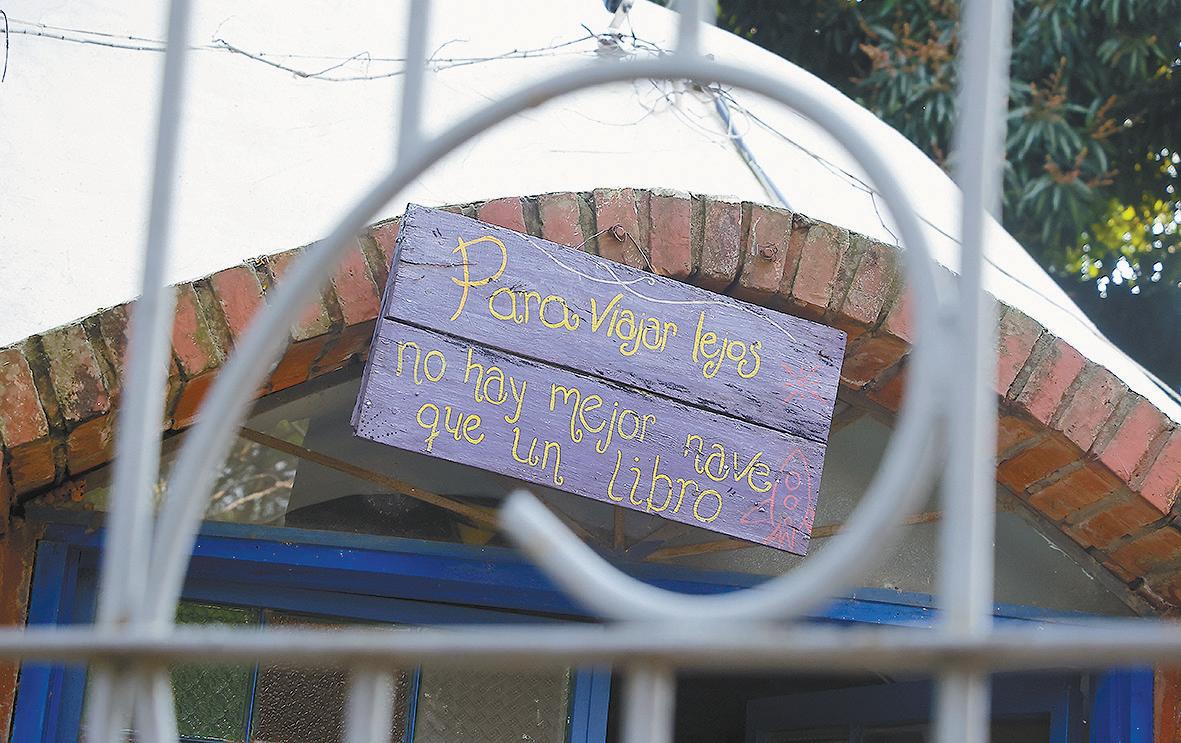 "Para viajar lejos
no hay mejor nave
que un libro"